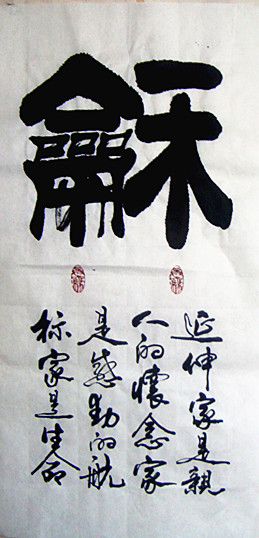 龢
延伸家是親
人的懷念家
是感动的航
标家是生命